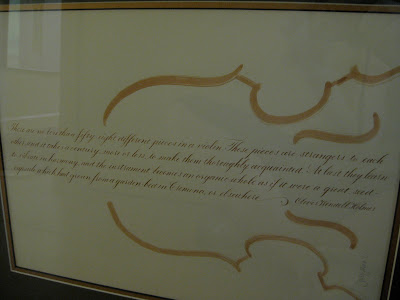 There are no less than fifty-eight different pieces in a violin. These pieces are strangers to each
other, and it takes a century, more or less, to make them thoroughly acquainted. At last they learn
to vibrate in harmony, and the instrument becomes an organic whole, as if it were a great seed-
capsule which had grown from a garden-bed in Cremona, or elsewhere.
Oliver Wendell Holmes